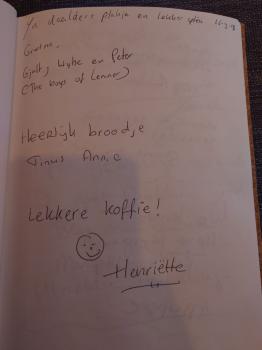 Yn daalders plakje en lekker iten
Gretna,
Gjalt, Wybe en Peter
(The boys of Lennor)
Heerlijk broodje
Tinus Annie
Lekkere koffie!
Henriëtte